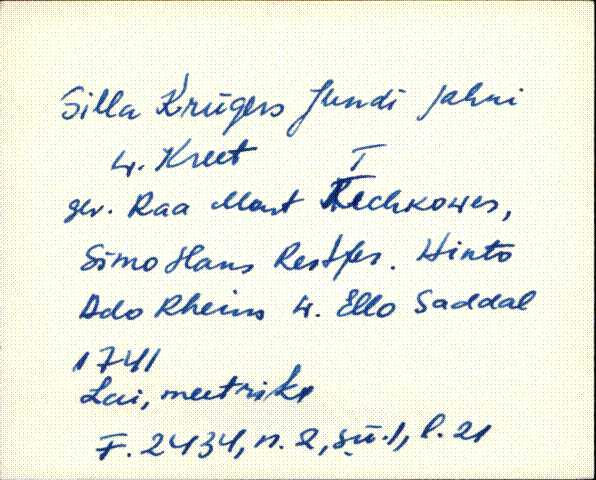 Silla Krügers Jundi Jahni
w. Kreet I
gev. Raa Mart Techkowes,
Simo Hans Restfer. Hinto
Ado Rheins w. Ello Saddal
1741
Lai, meetrika
F. 2434, n. 2, sü. 1, l. 21